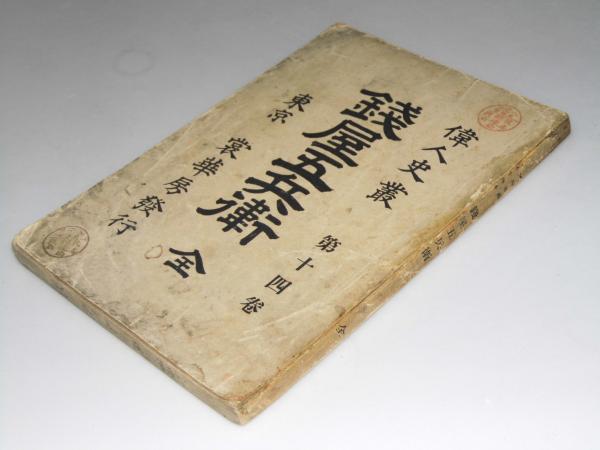 偉人史叢
第十四卷
錢屋五兵衛 全
東京 裳華房發行
錢屋五兵衛 全